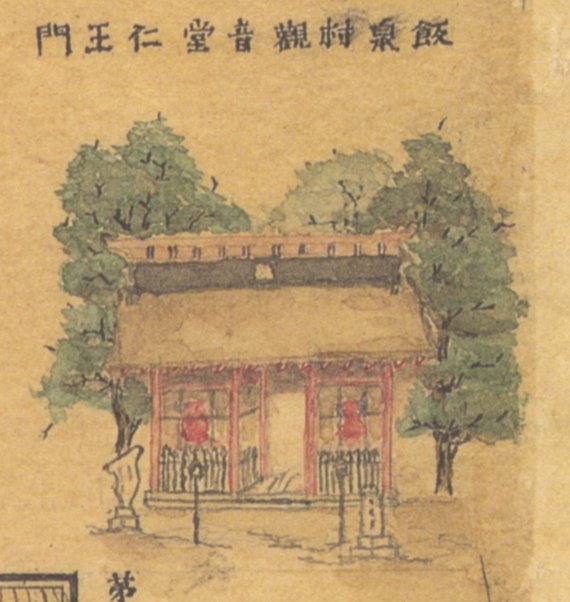 飯泉村觀音堂仁王門
第